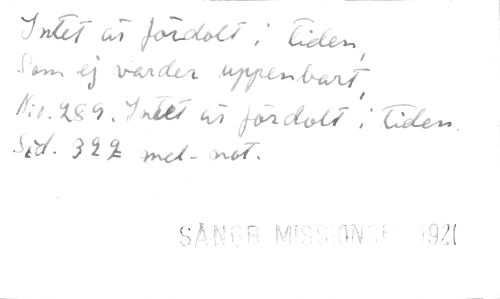 Intet är fördolt i tiden,
Som ej varder uppenbart,
N:o. 289. Intet är fördolt i tiden.
Sid. 322 mel-not.
SÅNGB MISSIONS 1921